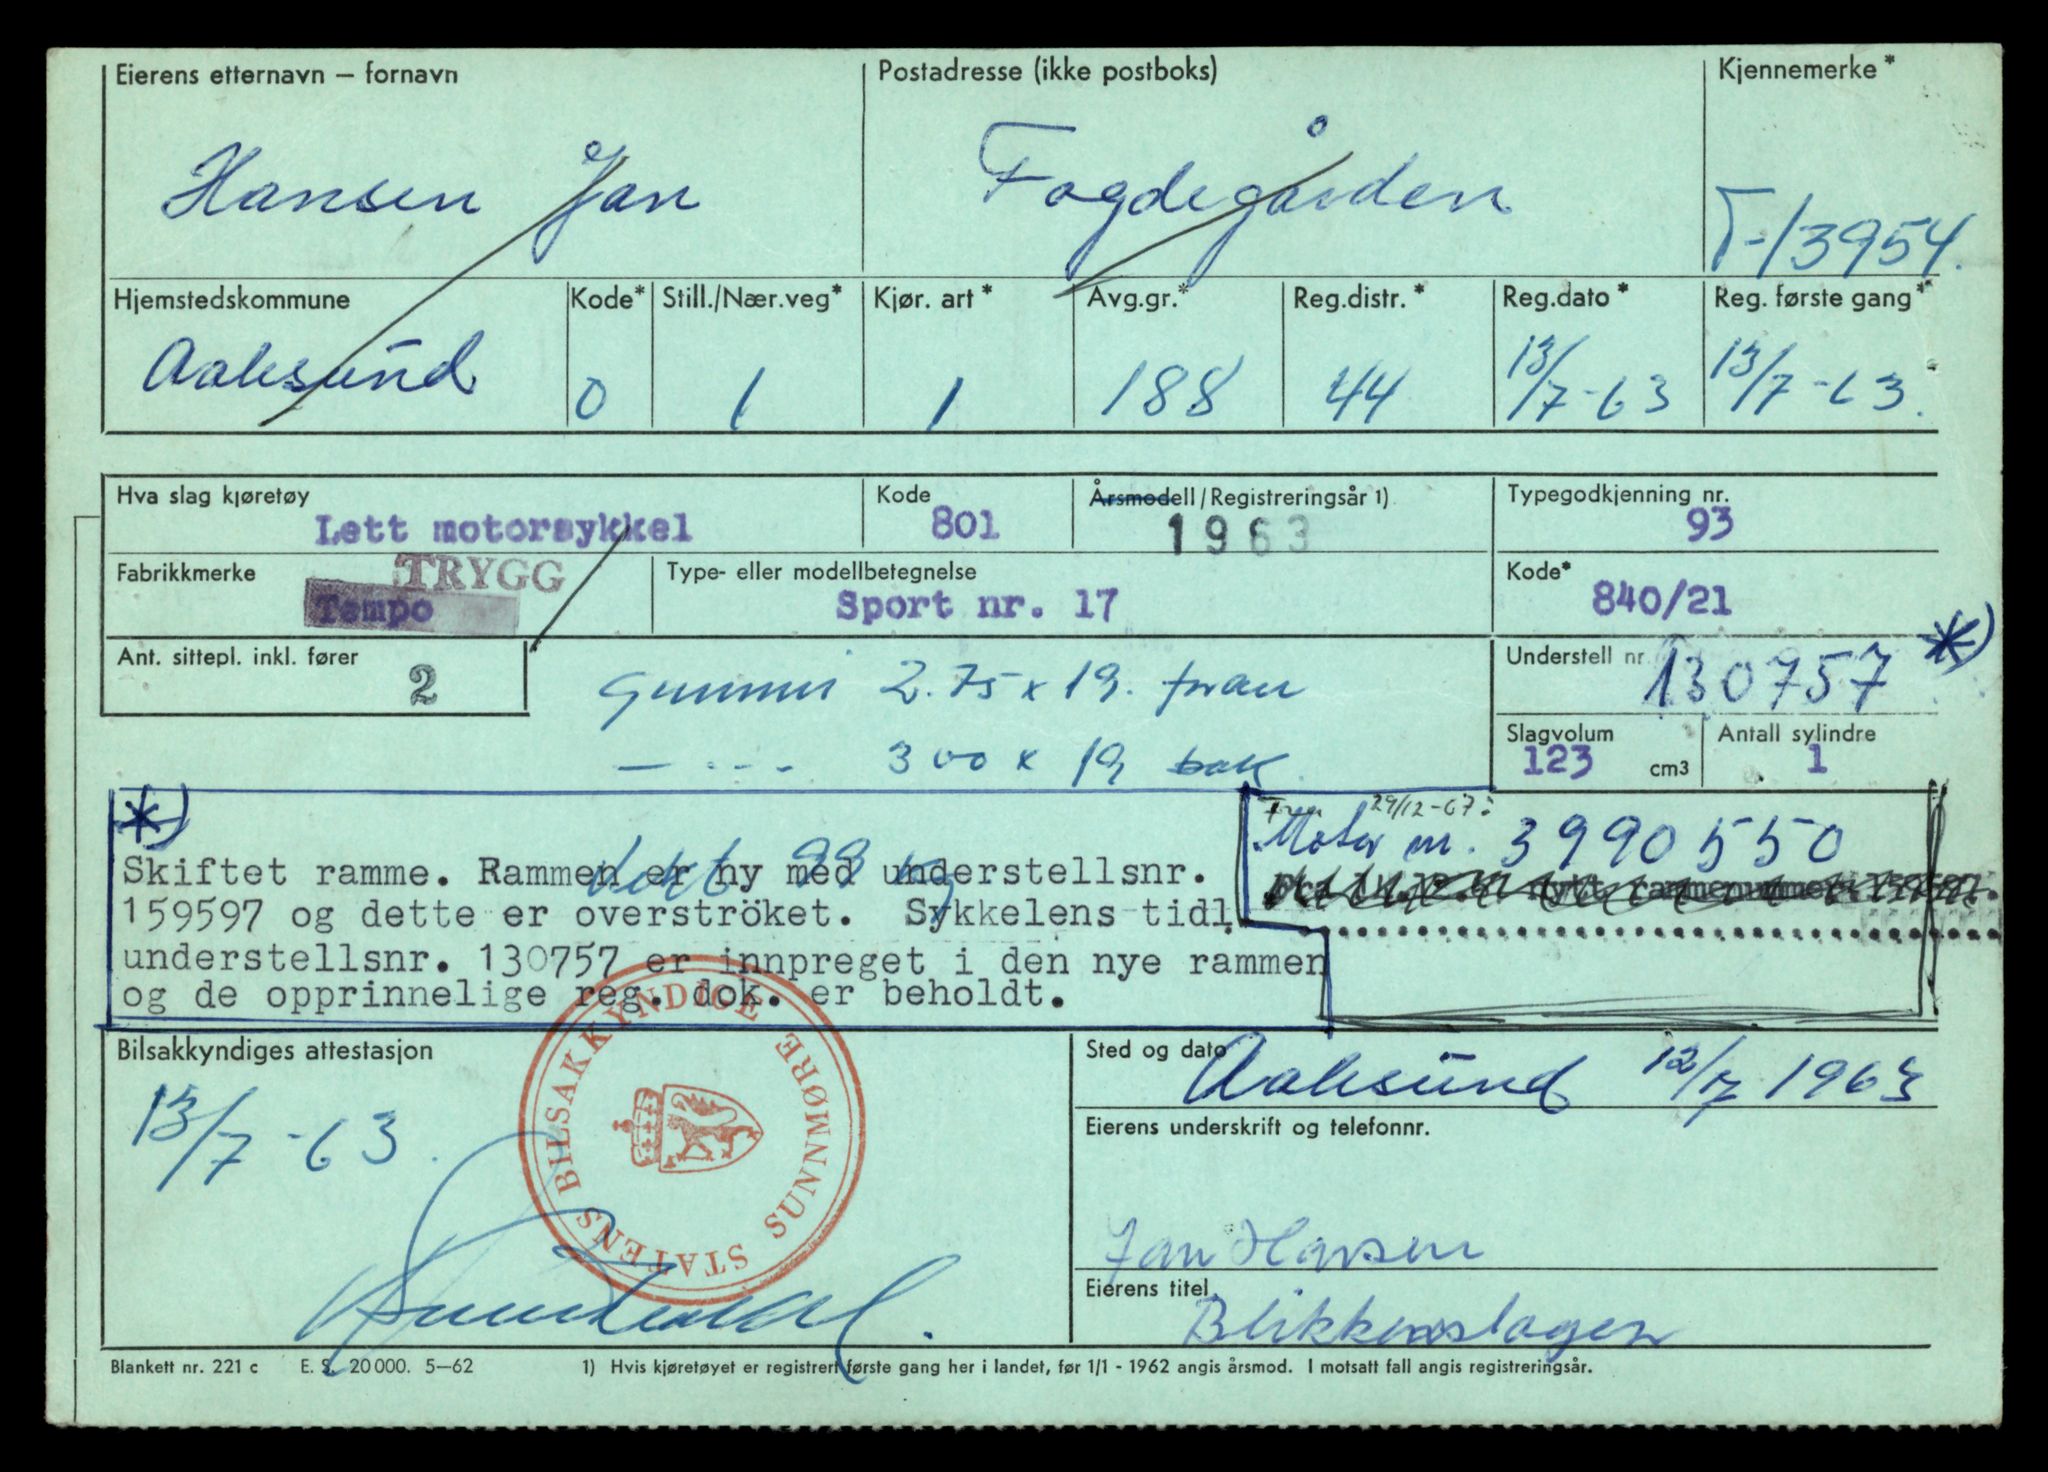 Eierens etternavn — fornavn Postadresse (ikke postboks) Kjennemerke*
Hansen Jan Fogdegården T-13954.
Hjemstedskommune Kode* Still./Nær.veg* Kjør. art* Avg.gr.* Reg.distr.* Reg.dato* Reg. første gang*
Aalesund 0 1 1 188 44 13/7-63 13/7-63.
Hva slag kjøretøy Kode Årsmodell/Registreringsår 1) Typegodkjenning nr.
Lett motorsykkel 801 1963 93
Fabrikkmerke TRYGG Type- eller modellbetegnelse Kode*
Tempo Sport nr. 17 840/21
Ant. sittepl. inkl. fører 2 Understell nr. 130757 *)
Gummi 2.75 x 19. foran
— . - - - 300 x 19 bak Slagvolum 123 cm3 Antall sylindre 1
*) Fra 29/12-67:
Motor nr. 3990550
vekt 99 kg
Skiftet ramme. Rammen er ny med understellsnr.
159597 og dette er overströket. Sykkelens tidl.
understellsnr. 130757 er innpreget i den nye rammen
og de opprinnelige reg. dok. er beholdt.
Bilsakkyndiges attestasjon Sted og dato Aalesund 12/7 1963
13/7-63.
STATENS BILSAKKYNDIGE SUNNMØRE
Eierens underskrift og telefonnr.
Jan Hansen
Eierens titel
Blikkenslager
Blankett nr. 221 c E. S. 20 000. 5—62 1) Hvis kjøretøyet er registrert første gang her i landet, før 1/1 - 1962 angis årsmod. I motsatt fall angis registreringsår.